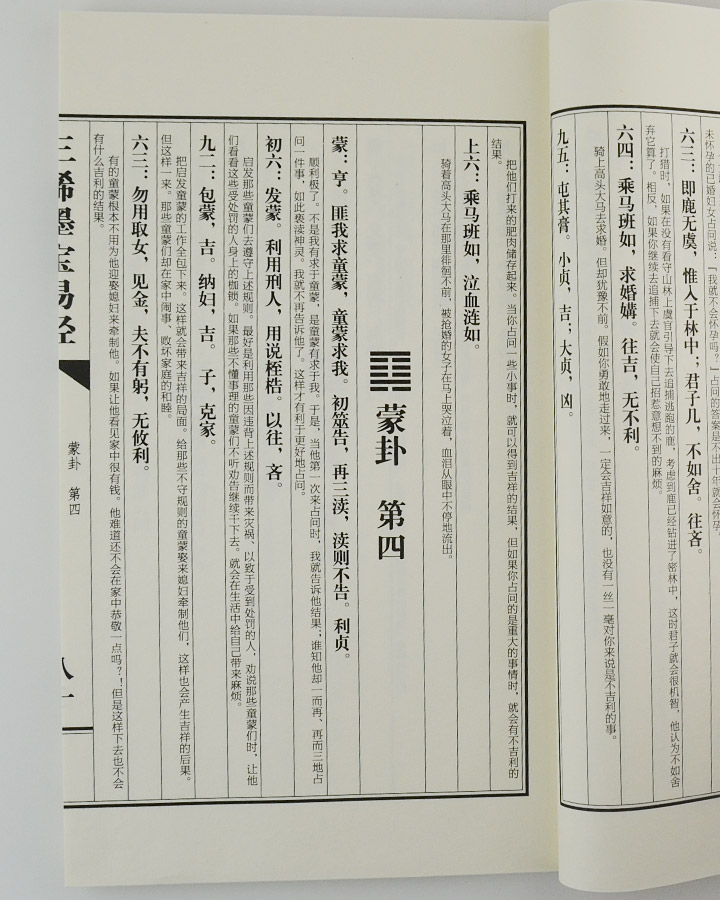 未怀孕的已婚妇女占问说：“我就不会怀孕吗？”占问的答案是不出十年就会怀孕。
六三：即鹿无虞，惟入于林中；君子几，不如舍。往吝。
打猎时，如果在没有看守山林上虞官引导下去追捕逃跑的鹿，考虑到鹿已经钻进了密林中，这时君子就会很机智，他认为不如舍
弃它算了。相反，如果你继续去追捕下去就会使自己招惹意想不到的麻烦。
六四：乘马班如，求婚媾。往吉，无不利。
骑上高头大马去求婚。但却犹豫不前。假如你勇敢地走过来，一定会吉祥如意的，也没有一丝一毫对你来说是不吉利的事。
九五：屯其膏。小贞，吉；大贞，凶。
把他们打来的肥肉储存起来。当你占问一些小事时，就可以得到吉祥的结果，但如果你占问的是重大的事情时，就会有不吉利的
结果。
上六：乘马班如，泣血涟如。
骑着高头大马在那里徘徊不前，被抢婚的女子在马上哭泣着，血泪从眼中不停地流出。
蒙卦 第四
蒙：亨。匪我求童蒙，童蒙求我。初筮告，再三渎，渎则不告。利贞。
顺利极了。不是我有求于童蒙，是童蒙有求于我。于是，当他第一次来占问时，我就告诉他结果；谁知他却一而再、再而三地占
问一件事，如此亵渎神灵。我就不再告诉他了。这样才有利于更好地占问。
初六：发蒙。利用刑人，用说桎梏。以往，吝。
启发那些童蒙们去遵守上述规则。最好是利用那些因违背上述规则而带来灾祸、以致于受到处罚的人，劝说那些童蒙们时，让他
们看看这些受处罚的人身上的枷锁。如果那些不懂事理的童蒙们不听劝告继续干下去。就会在生活中给自己带来麻烦。
九二：包蒙，吉。纳妇，吉。子，克家。
把启发童蒙的工作全包下来。这样就会带来吉祥的局面。给那些不守规则的童蒙娶来媳妇牵制他们，这样也会产生吉祥的后果。
但这样一来。那些童蒙们却在家中闹事、败坏家庭的和睦。
六三：勿用取女，见金，夫不有躬，无攸利。
有的童蒙根本不用为他迎娶媳妇来牵制他。如果让他看见家中很有钱。他难道还不会在家中恭敬一点吗？！但是这样下去也不会
有什么吉利的结果。
三希墨宝易经
蒙卦 第四
八一